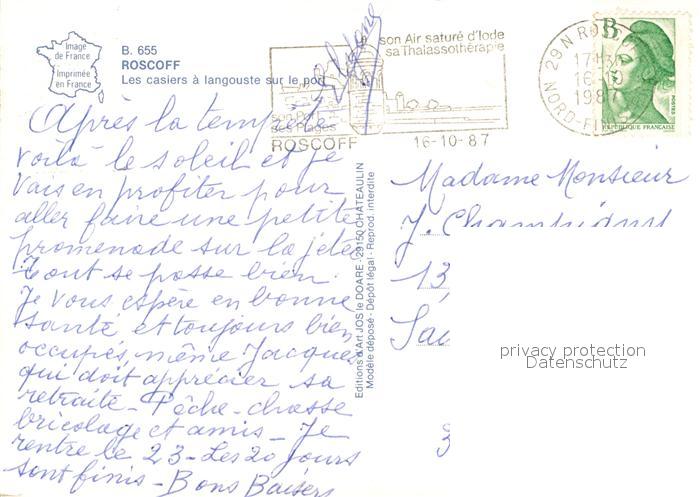 Image
de France
Imprimée
en France
B. 655
ROSCOFF
Les casiers à langouste sur le port
son Air saturé d'Iode
sa Thalassothérapie
son Port
ses Plages
ROSCOFF
16-10-87
29 N
17H
16-10
1987
NORD-FI
B
POSTES
REPUBLIQUE FRANÇAISE
Après la tempête
voilà le soleil et je
vais en profiter pour
aller faire une petite
promenade sur la jetée
Tout se passe bien.
Je vous espère en bonne
santé et toujours bien
occupés, même Jacques
qui doit apprécier sa
retraite - Pêche - chasse
bricolage et amis - Je
rentre le 23 - Les 20 jours
sont finis - Bons Baisers
Editions d'Art JOS le DOARE - 29150 CHATEAULIN
Modèle déposé - Dépôt légal - Reprod. interdite
Madame Monsieur
J.
13
privacy protection
Datenschutz